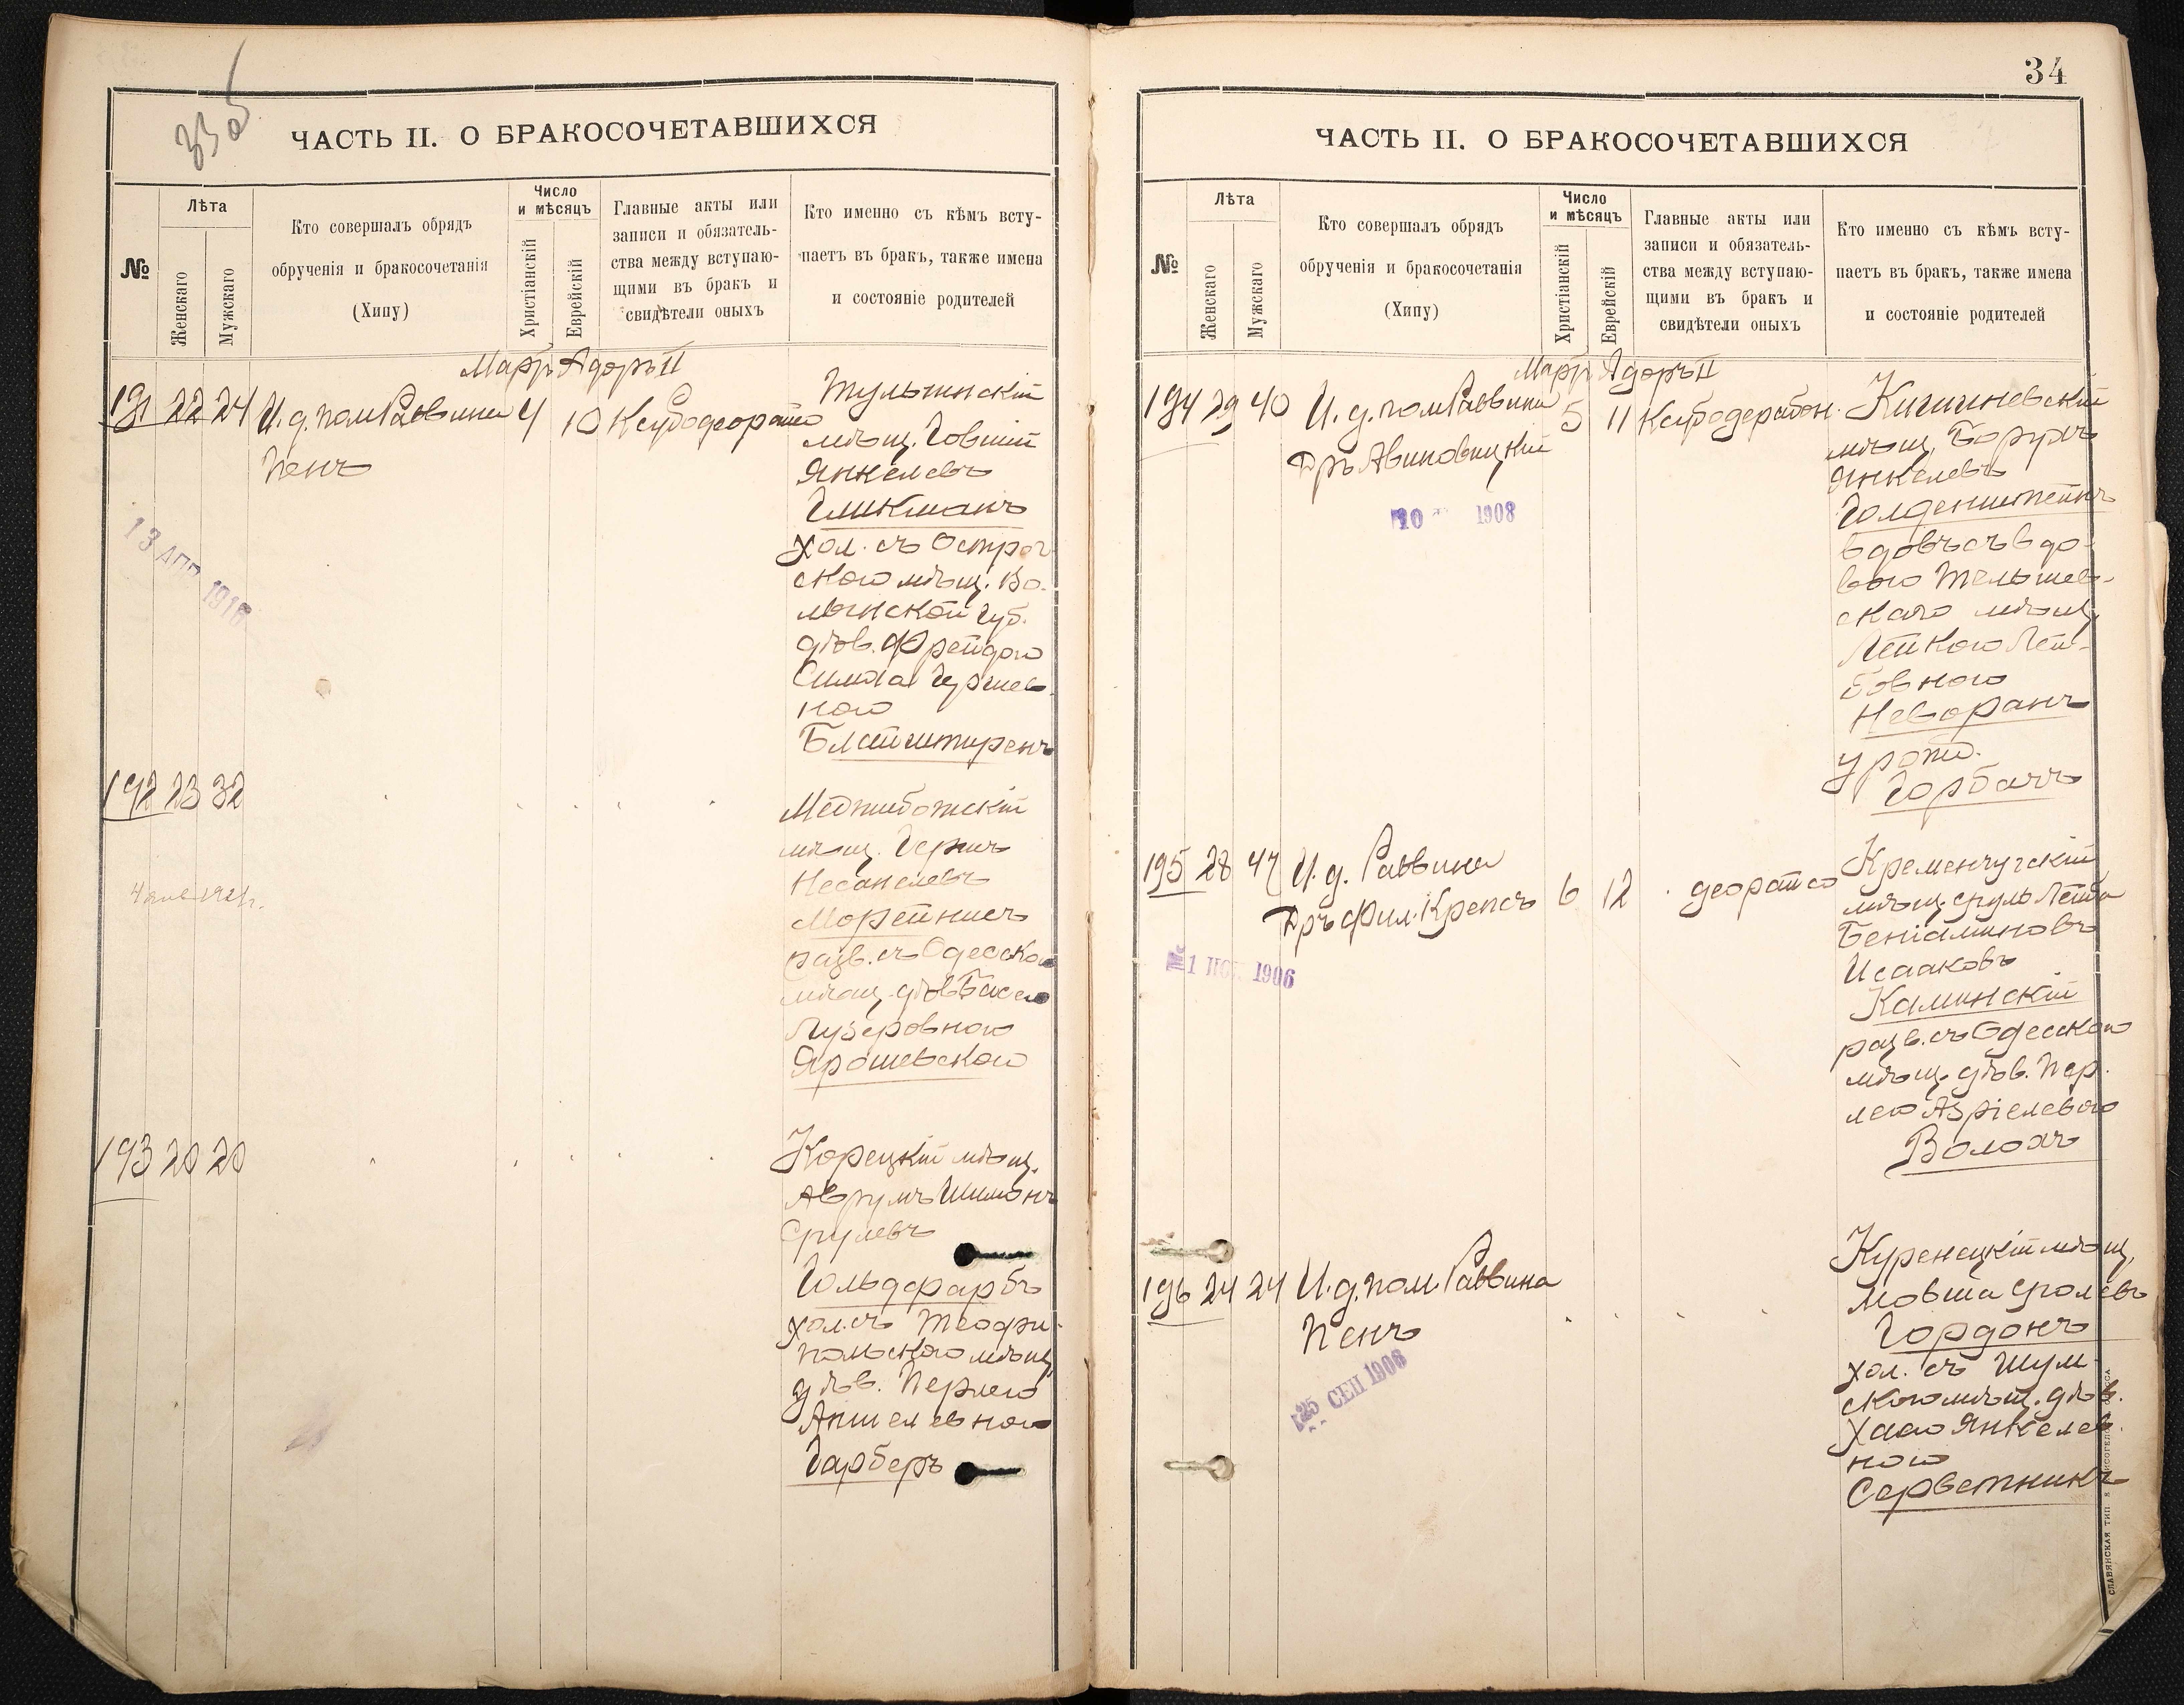 33об
ЧАСТЬ II. О БРАКОСОЧЕТАВШИХСЯ
№
Лѣта
Женскаго
Мужскаго
Кто совершалъ обрядъ
обрученія и бракосочетанія
(Хипу)
Число
и мѣсяцъ
Христіанскій
Еврейскій
Главные акты или
записи и обязатель-
ства между вступаю-
щими въ бракъ и
свидѣтели оныхъ
Кто именно съ кѣмъ всту-
паетъ въ бракъ, также имена
и состояніе родителей
Мартъ Адоръ II
191 22 24 И. д. пом Раввина 4 10
Пенъ
Тульчинскій
мѣщ. Говшій
Янкелевъ
Гликманъ
хол. съ Острог-
скою мѣщ. Во-
лынской губ.
дѣв. Фрейдою
Симой Гершев-
ною
Блайштиренъ
13 АПР 1916
192 23 32
Меджибожскій
мѣщ. Гершъ
Несанелевъ
Морейнисъ
разв. съ Одесскою
мѣщ. дѣв Басею
Лузеровною
Ярошевскою
193 20 20
Корецкій мѣщ.
Аврумъ Шимонъ
Срулевъ
Гольдфарбъ
хол. съ Теофи-
польскою мѣщ
дѣв. Перлею
Апшелевною
Гарберъ
34
ЧАСТЬ II. О БРАКОСОЧЕТАВШИХСЯ
№
Лѣта
Женскаго
Мужскаго
Кто совершалъ обрядъ
обрученія и бракосочетанія
(Хипу)
Число
и мѣсяцъ
Христіанскій
Еврейскій
Главные акты или
записи и обязатель-
ства между вступаю-
щими въ бракъ и
свидѣтели оныхъ
Кто именно съ кѣмъ всту-
паетъ въ бракъ, также имена
и состояніе родителей
Мартъ Адоръ II
194 29 40 И. д. пом Раввина 5 11
Дръ Авиновицкій
10 1908
Кишиневскій
мѣщ. Борухъ
Янкелевъ
Голденштейнъ
вдовъ съ вдо-
вою Тельшев-
скаго мѣщ
Лейкою Лей-
бовною
Неворанъ
урожд.
Горбачъ
195 28 47 И. д. Раввина 6 12
Дръ Фил. Крепсъ
1 НОЯ 1906
Кременчугскій
мѣщ. Сруль Лейба
Беніаминовъ
Исааковъ
Каминскій
разв. съ Одесскою
мѣщ. дѣв. Пер-
лею Азріелевою
Волохъ
196 24 24 И. д. пом. Раввина
Пенъ
25 СЕП 1906
Куренецкій мѣщ.
Мовша Сролевъ
Гордонъ
хол. съ Шум-
скою мѣщ. дѣв.
Хаею Янкелев-
ною
Серветникъ